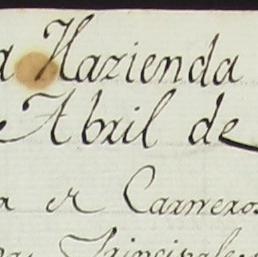 Hazienda
Abril de
Carneros
Principales